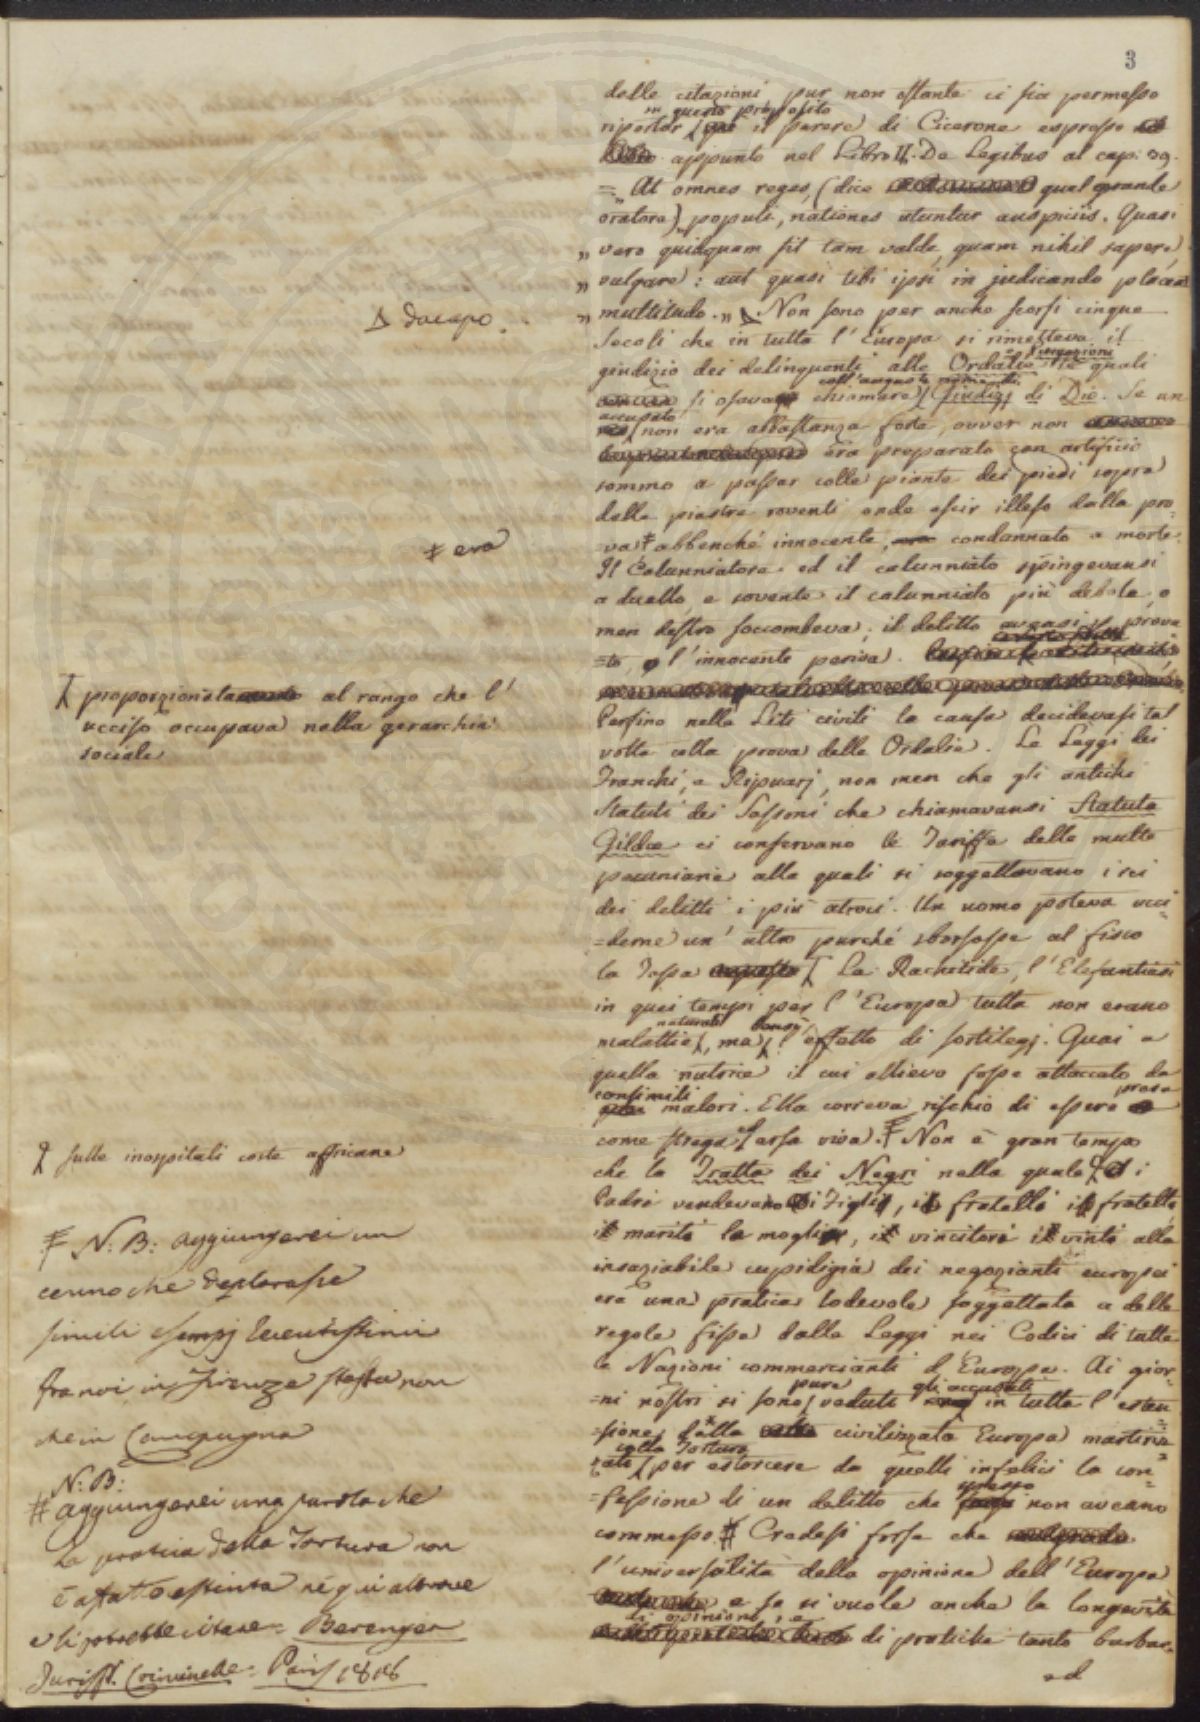 3
delle citazioni pur non ostante ci sia permesso
in questo proposito
riportar qui il parere di Cicerone espresso
appunto nel Libro II. De Legibus al cap: 39.
= „ At omnes reges, (dice quel grande
oratore) populi, nationes utuntur auspiciis. Quasi
„ vero quidquam sit tam valde, quam nihil sapere,
„ vulgare: aut quasi tibi ipsi in judicando placeat
„ multitudo. „ Non sono per anche scorsi cinque
Δ dacapo.
secoli che in tutta l'Europa si rimetteva il
giudizio dei delinquenti alle Ordalie le quali
coll'augusto nome di
si osava chiamare Giudizj di Dio. Se un
accusato
non era abbastanza forte, ovver non
era preparato con artificio
sommo a passar colle piante dei piedi sopra
delle piastre roventi onde escir illeso dalla pro=
=va ǂ abbenché innocente, condannato a morte.
ǂ era
Il Calunniatore ed il calunniato spingevansi
a duello, e sovente il calunniato più debole, o
men destro soccombeva; il delitto aveasi per prova
=to, e l'innocente periva.
Persino nelle Liti civili la causa decidevasi tal
volta colla prova delle Ordalie. Le Leggi dei
Franchi, e Ripuarj, non men che gli antichi
Statuti dei Sassoni che chiamavansi Statuta
Gildæ ci conservano le Tariffe delle multe
pecuniarie alle quali si soggettavano i rei
dei delitti i più atroci. Un uomo poteva ucci=
=derne un'altro purché sborsasse al fisco
la Tassa La Rachitide, l'Elefantiasi
proporzionata al rango che l'
ucciso occupava nella gerarchia
sociale
in quei tempi per l'Europa tutta non erano
naturali bensì
malattie, ma l'effetto di sortilegj. Guai a
quella nutrice il cui allievo fosse attaccato da
consimili presa
malori. Ella correva rischio di essere
come strega arsa viva. ǂ Non è gran tempo
che la Tratta dei Negri nella quale i
sulle inospitali coste affricane
Padri vendevano i Figli, i fratelli i fratelli
i mariti le mogli, i vincitori i vinti alla
insaziabile cupidigia dei negozianti europei
era una pratica lodevole soggettata a delle
regole fisse dalle Leggi nei Codici di tutte
le Nazioni commercianti d'Europa. Ai gior=
pure gli accusati
=ni nostri si sono veduti in tutta l'esten
=sione della civilizzata Europa martiriz=
colla Tortura
zati per estorcere da quelli infelici la con=
spesso
=fessione di un delitto che non aveano
commesso. # Credesi forse che
l'universalità della opinione dell'Europa
e se si vuole anche la longevità
di opinioni, e
di pratiche tanto barbar=
ed
ǂ N: B: aggiungerei un
cenno che deplorasse
simili esempj recentissimi
fra noi in Firenze stessa non
che in Campagna
N: B:
# aggiungerei una parola che
la pratica della Tortura non
è affatto estinta né qui altrove
e si potrebbe citare = Berenger
Parif 1818